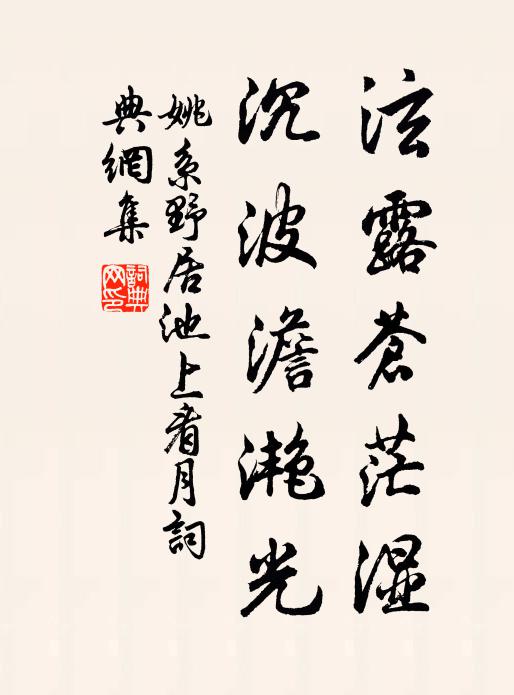 泫露蒼茫濕
沉波澹灔光
姚系野居池上看月詞
典網集
詞典網印